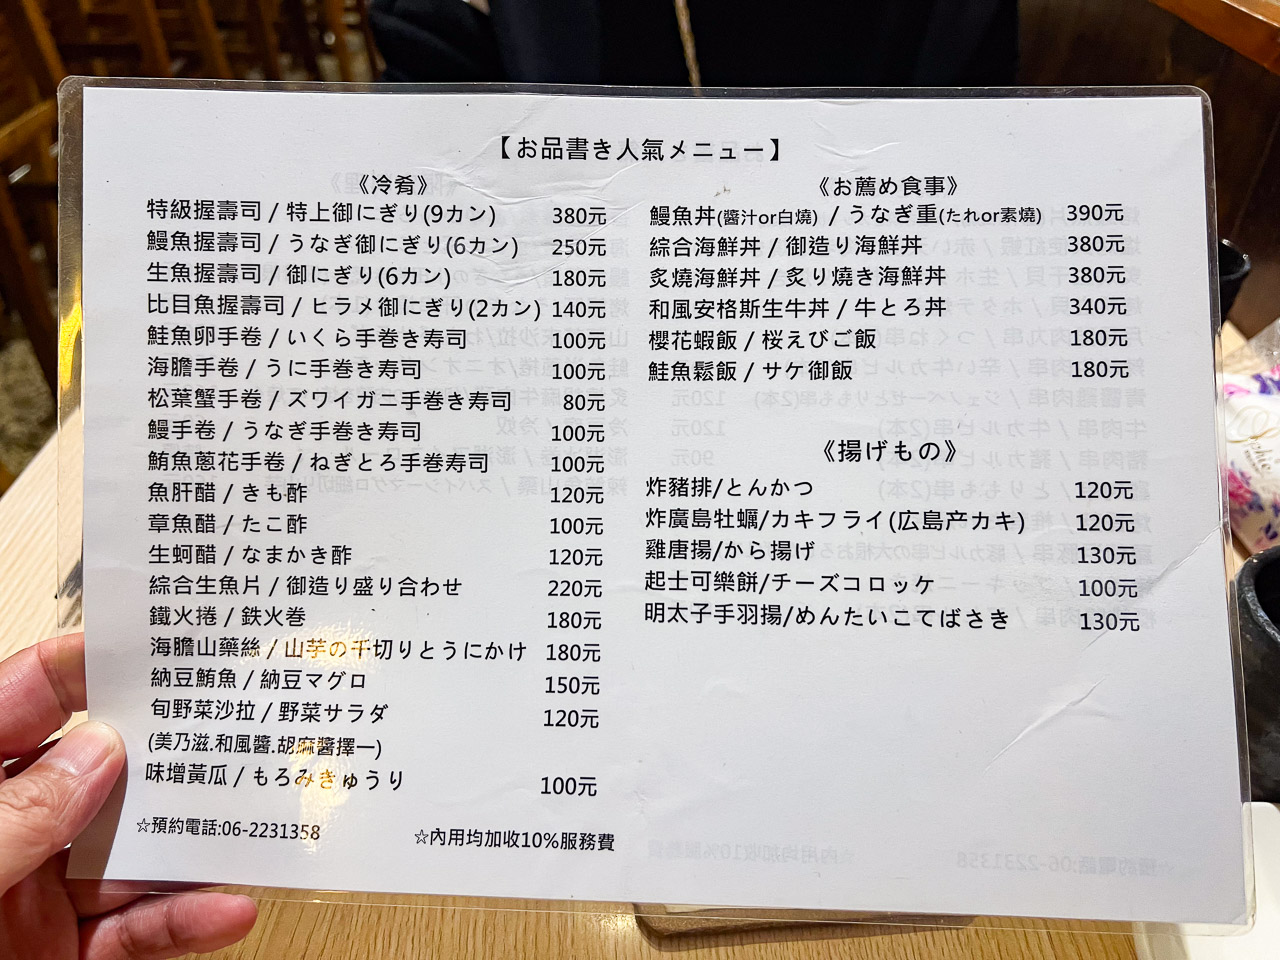 【お品書き人氣メニュー】
《冷肴》
特級握壽司 / 特上御にぎり(9カン) 380元
鰻魚握壽司 / うなぎ御にぎり(6カン) 250元
生魚握壽司 / 御にぎり(6カン) 180元
比目魚握壽司 / ヒラメ御にぎり(2カン) 140元
鮭魚卵手卷 / いくら手巻き寿司 100元
海膽手卷 / うに手巻き寿司 100元
松葉蟹手卷 / ズワイガニ手巻き寿司 80元
鰻手卷 / うなぎ手巻き寿司 100元
鮪魚蔥花手卷 / ねぎとろ手巻寿司 100元
魚肝醋 / きも酢 120元
章魚醋 / たこ酢 100元
生蚵醋 / なまかき酢 120元
綜合生魚片 / 御造り盛り合わせ 220元
鐵火捲 / 鉄火巻 180元
海膽山藥絲 / 山芋の千切りとうにかけ 180元
納豆鮪魚 / 納豆マグロ 150元
旬野菜沙拉 / 野菜サラダ 120元
(美乃滋.和風醬.胡麻醬擇一)
味增黃瓜 / もろみきゅうり 100元
☆預約電話:06-2231358
☆內用均加收10%服務費
《お薦め食事》
鰻魚丼(醬汁or白燒) / うなぎ重(たれor素燒) 390元
綜合海鮮丼 / 御造り海鮮丼 380元
炙燒海鮮丼 / 炙り燒き海鮮丼 380元
和風安格斯生牛丼 / 牛とろ丼 340元
櫻花蝦飯 / 桜えびご飯 180元
鮭魚鬆飯 / サケ御飯 180元
《揚げもの》
炸豬排/とんかつ 120元
炸廣島牡蠣/カキフライ(広島産カキ) 120元
雞唐揚/から揚げ 130元
起士可樂餅/チーズコロッケ 100元
明太子手羽揚/めんたいこてばさき 130元